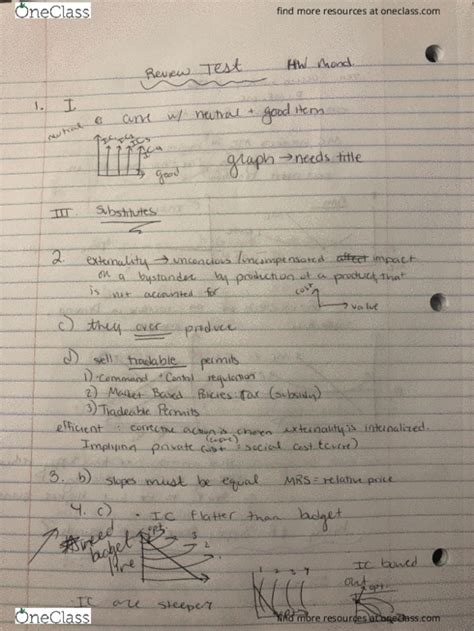 OneClass
find more resources at oneclass.com
Review Test HW Mond.
1. I
e curve w/ neutral + good item
neutral
IC1 IC2 IC3 IC4
good
graph → needs title
III Substitutes
2. externality → unconcious/uncompensated affect impact
on a bystander by production of a product that
is not accounted for
cost
value
c) they over produce
d) sell tradable permits
1) Command + Control regulation
2) Market Based Policies: tax (subsidy)
3) Tradeable Permits
efficient : corrective action is chosen externality is internalized.
Implying private cost (curve) : social cost (curve)
3. b) slopes must be equal MRS = relative price
4. c) • IC flatter than budget
need
budget
line
opt
3
2
1
IC are steeper
1 2 3 4
opt
IC bowed
out
opt
OneClass
find more resources at oneclass.com